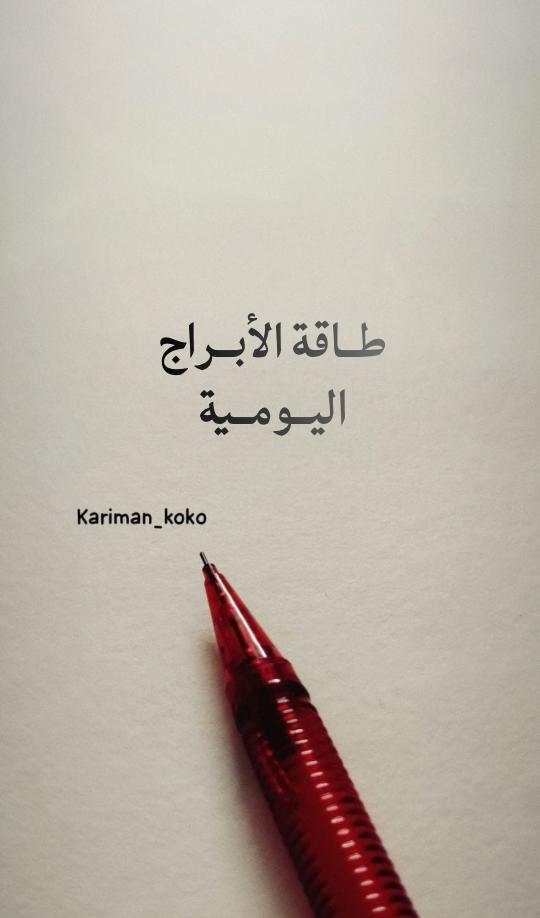 طـاقة الأبـراج
اليـومـية
Kariman_koko